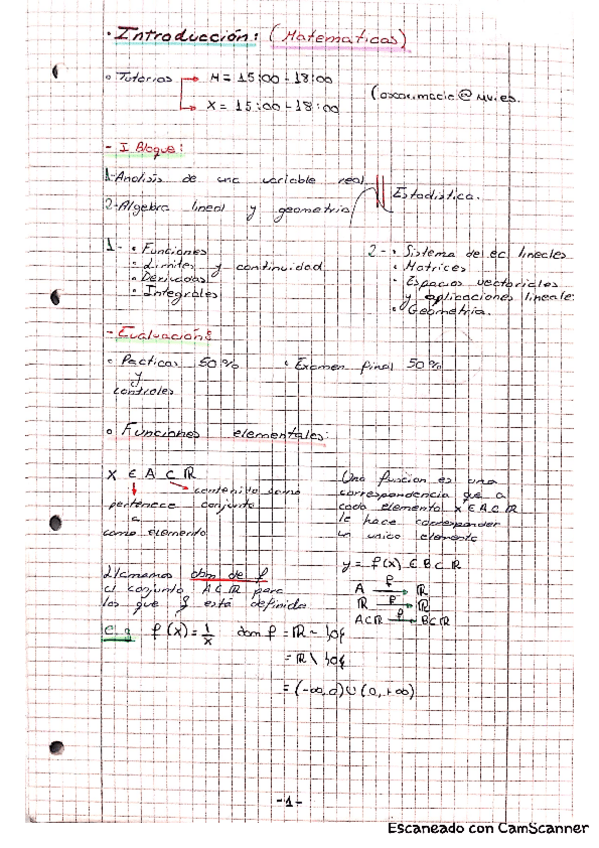 · Introducción: (Matematicas)
∘ Tutorias → M = 15:00 - 18:00
→ X = 15:00 - 18:00
- I Bloque:
1- Analisis de una variable real
Estadistica.
2- Algebra lineal y geometria
1- · Funciones
· Limites y continuidad
· Derivadas
· Integrales
2- · Sistema de ec lineales
· Matrices
· Espacios vectoriales
y aplicaciones lineale
· Geometria.
- Evaluación:
· Pacticas 50%
y
controles
· Examen final 50%
∘ Funciones elementales:
X ∈ A ⊂ ℝ
contenido como
pertenece conjunto
a
como elemento
Una funcion es una
correspondencia que a
cada elemento x ∈ A ⊂ ℝ
le hace corresponder
un unico elemento
y = f(x) ∈ B ⊂ ℝ
A f→ ℝ
ℝ f→ ℝ
A⊂ℝ f→ B⊂ℝ
Llamamos dom de f
al conjunto A⊂ℝ para
los que f está definida
f(x) = 1/x dom f = ℝ - {0}
= ℝ \ {0}
= (-∞, 0) ∪ (0, +∞)
-1-
Escaneado con CamScanner